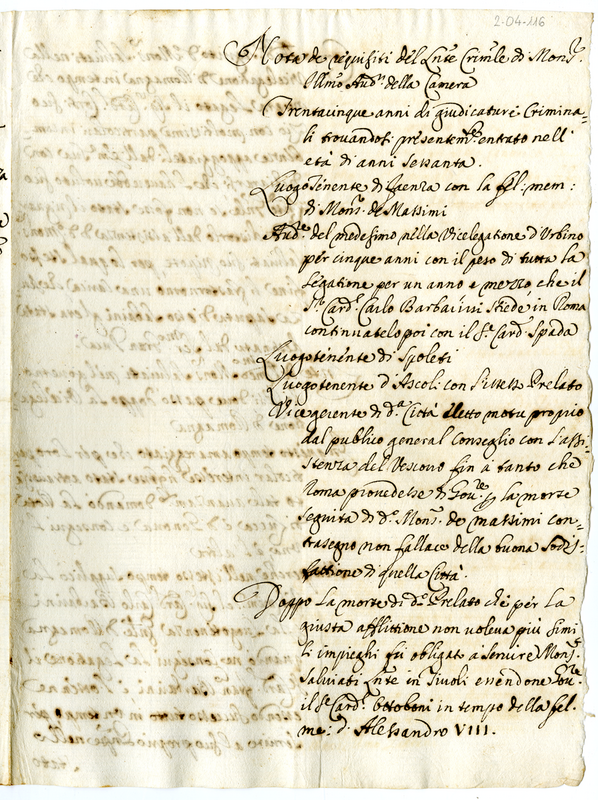 2-04-116
Nota de requisiti del Lnte Crimle di Monsr
Illmo Audr della Camera
Trentacinque anni di giudicature Crimina=
li trovandosi presentemte entrato nell
età di anni sessanta.
Luogotenente di Faenza con la fel: mem:
di Monsr de Massimi
Audre del medesimo nella Vicelegatione d'Urbino
per cinque anni con il peso di tutta la
legatione per un anno e mezzo, che il
Sr Cardl Carlo Barbarini stiede in Roma
continuatelo poi con il Sr Card Spada
Luogotenente di Spoleti
Luogotenente d'Ascoli con Prelato
Vicegerente di da Città eletto motu proprio
dal publico general Conseglio con l'assi=
stenza del Vescovo fin à tanto che
Roma provedesse di Govre p la morte
seguita di do Monsr de Massimi con=
trasegno non fallace della buona sodis=
fattione di quella Città.
Doppo la morte di do Prelato che per la
giusta afflittione non voleva più simi
li impieghi fù obligato à servire Monsr
Salviati Lnte in Tivoli essendone Govre
il Sr Cardl Ottoboni in tempo della fel.
me: d. Alessandro VIII.